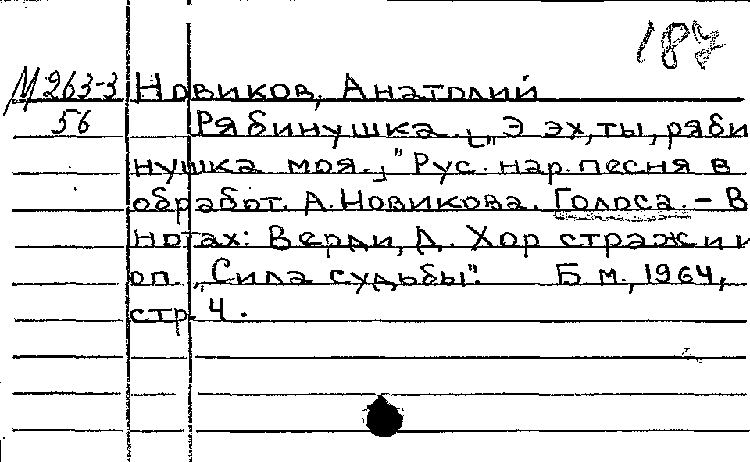 187
М 263-3 Новиков, Анатолий
56 Рябинушка. [„Э эх, ты, ряби
нушка моя.]" Рус. нар. песня в
обработ. А. Новикова. Голоса. – В
нотах: Верди, Д. Хор стражи и
оп. „Сила судьбы". Б м., 1964,
стр. 4.